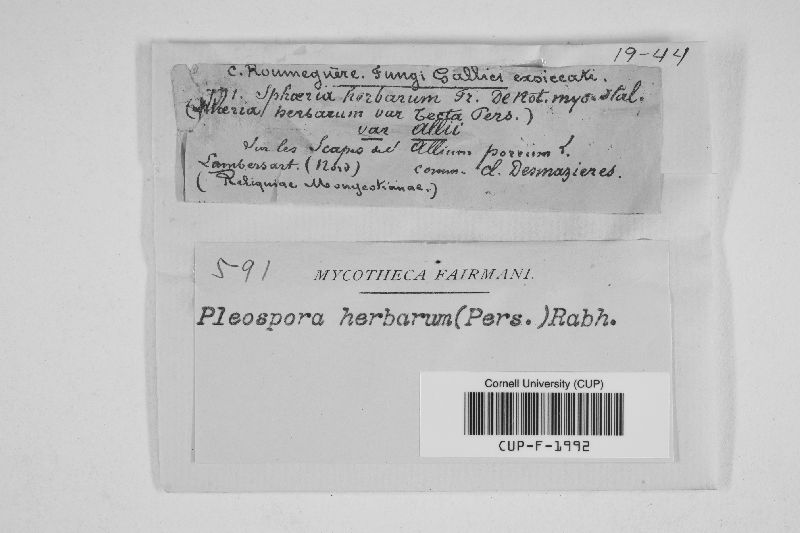 19-44
C. Roumeguère. Fungi Gallici exsiccati.
591. Sphæria herbarum Fr. De Not. myc. Ital.
(Sphæria herbarum var tecta Pers.)
var Allii
Sur les Scapes de l'Allium porrum L.
Lambersart. (Nord) comm. cl. Desmazieres.
(Reliquiae Mougeotianae.)
591 MYCOTHECA FAIRMANI.
Pleospora herbarum(Pers.)Rabh.
Cornell University (CUP)
CUP-F-1992